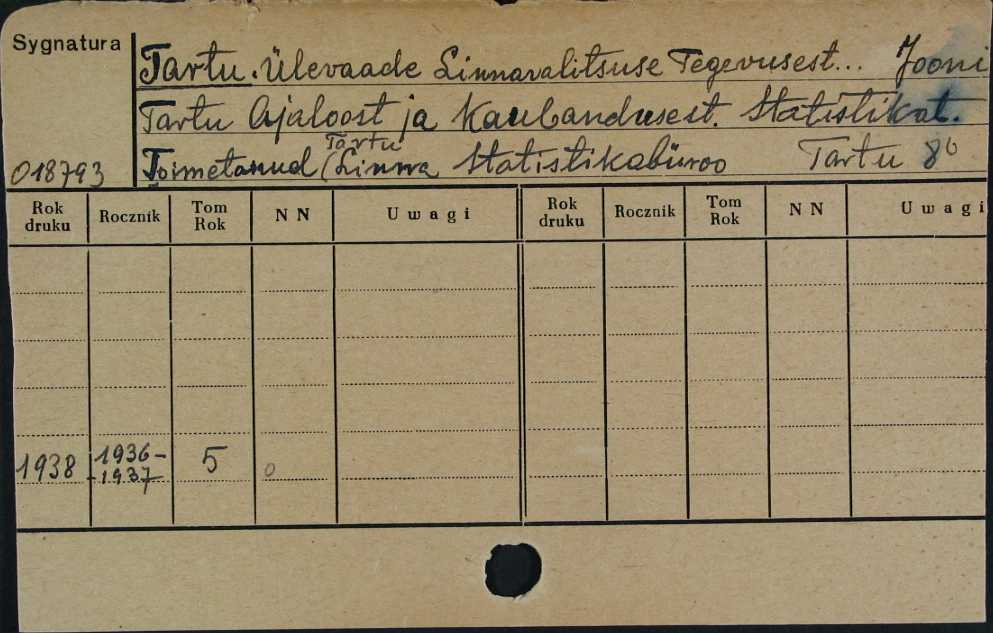 Sygnatura
Tartu. Ülevaade Linnavalitsuse Tegevusest... Jooni
Tartu Ajaloost ja Kaubandusest. Statistikat.
Tartu
018793 Toimetanud (Linna Statistikabüroo Tartu 8º
Rok druku Rocznik Tom Rok NN Uwagi Rok druku Rocznik Tom Rok NN Uwagi
1938 1936- 5 0
-1937